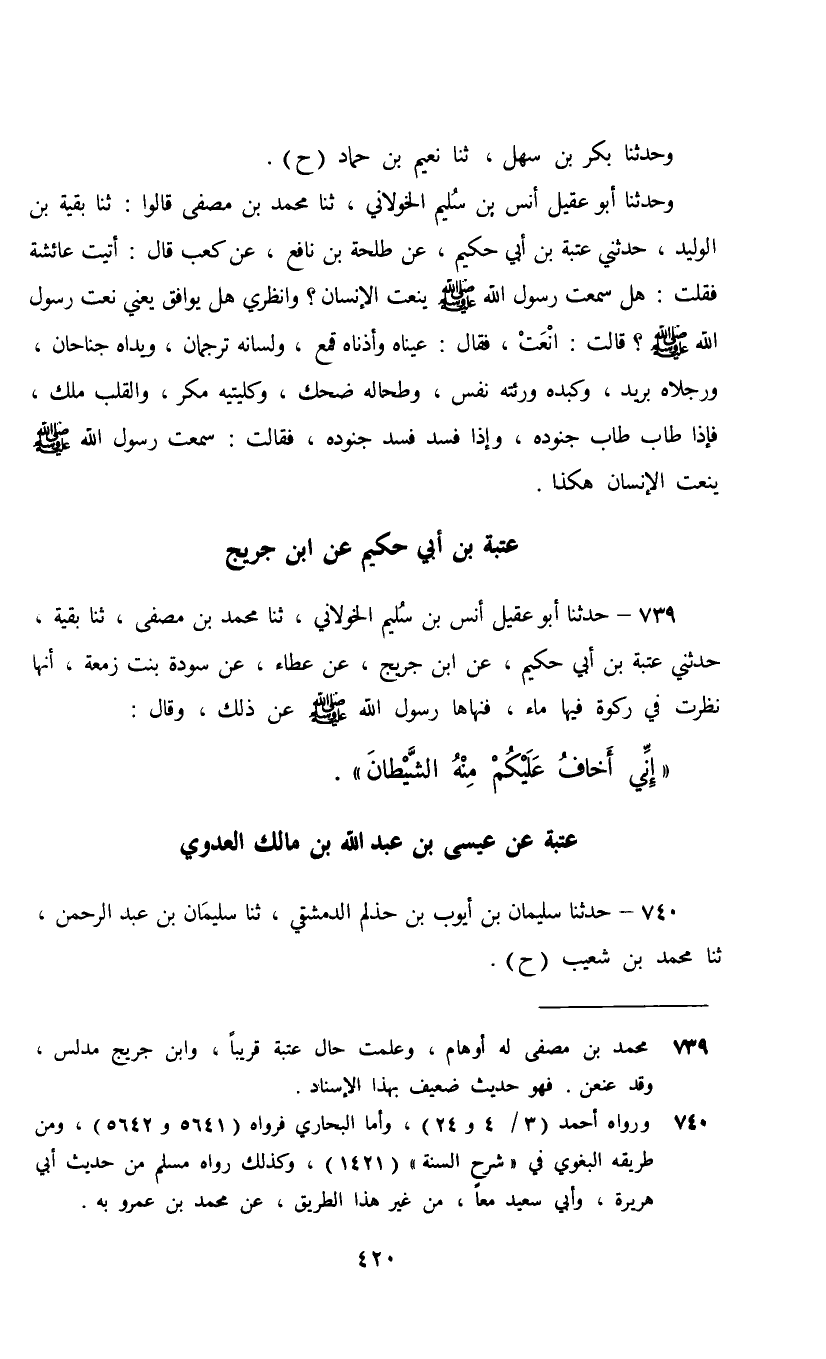 وحدثنا بكر بن سهل ، ثنا نعيم بن حماد (ح) .
وحدثنا أبو عقيل أنس بن سُليم الخولاني ، ثنا محمد بن مصفى قالوا : ثنا بقية بن
الوليد ، حدثني عتبة بن أبي حكيم ، عن طلحة بن نافع ، عن كعب قال : أتيت عائشة
فقلت : هل سمعت رسول الله ﷺ ينعت الإنسان ؟ وانظري هل يوافق يعني نعت رسول
الله ﷺ ؟ قالت : انْعَتْ ، فقال : عيناه وأذناه قمع ، ولسانه ترجمان ، ويداه جناحان ،
ورجلاه بريد ، وكبده ورئته نفس ، وطحاله ضحك ، وكليتيه مكر ، والقلب ملك ،
فإذا طاب طاب جنوده ، وإذا فسد فسد جنوده ، فقالت : سمعت رسول الله ﷺ
ينعت الإنسان هكذا .
عتبة بن أبي حكيم عن ابن جريج
٧٣٩ – حدثنا أبو عقيل أنس بن سُليم الخولاني ، ثنا محمد بن مصفى ، ثنا بقية ،
حدثني عتبة بن أبي حكيم ، عن ابن جريج ، عن عطاء ، عن سودة بنت زمعة ، أنها
نظرت في ركوة فيها ماء ، فنهاها رسول الله ﷺ عن ذلك ، وقال :
« إِنِّي أَخافُ عَلَيْكُمْ مِنْهُ الشَّيْطانَ » .
عتبة عن عيسى بن عبد الله بن مالك العدوي
٧٤٠ – حدثنا سليمان بن أيوب بن حذلم الدمشقي ، ثنا سليمَان بن عبد الرحمن ،
ثنا محمد بن شعيب (ح) .
٧٣٩ محمد بن مصفى له أوهام ، وعلمت حال عتبة قريباً ، وابن جريج مدلس ،
وقد عنعن . فهو حديث ضعيف بهذا الإسناد .
٧٤٠ ورواه أحمد (٣ / ٤ و ٢٤) ، وأما البخاري فرواه (٥٦٤١ و ٥٦٤٢) ، ومن
طريقه البغوي في « شرح السنة » (١٤٢١) ، وكذلك رواه مسلم من حديث أبي
هريرة ، وأبي سعيد معاً ، من غير هذا الطريق ، عن محمد بن عمرو به .
٤٢٠